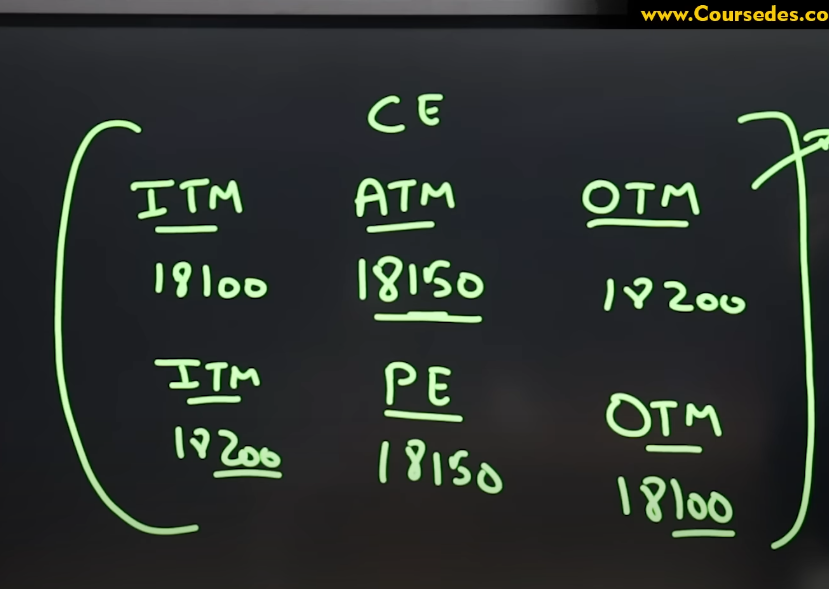 www.Coursedes.co
CE
ITM ATM OTM
18100 18150 18200
ITM PE OTM
18200 18150 18100